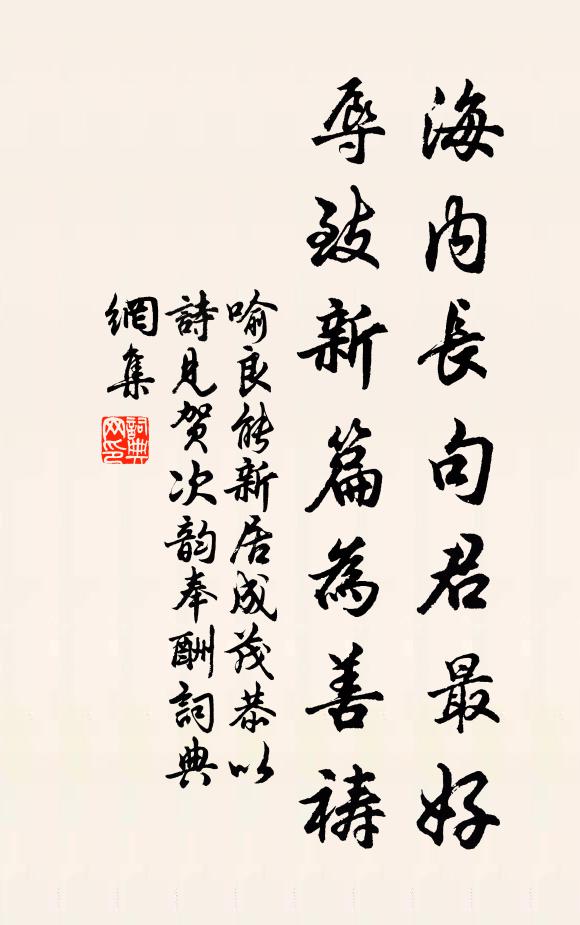 海内長句君最好
辱致新篇為善禱
喻良能新居成茂恭以
詩見贺次韵奉酬詞典
網集
詞典
网印